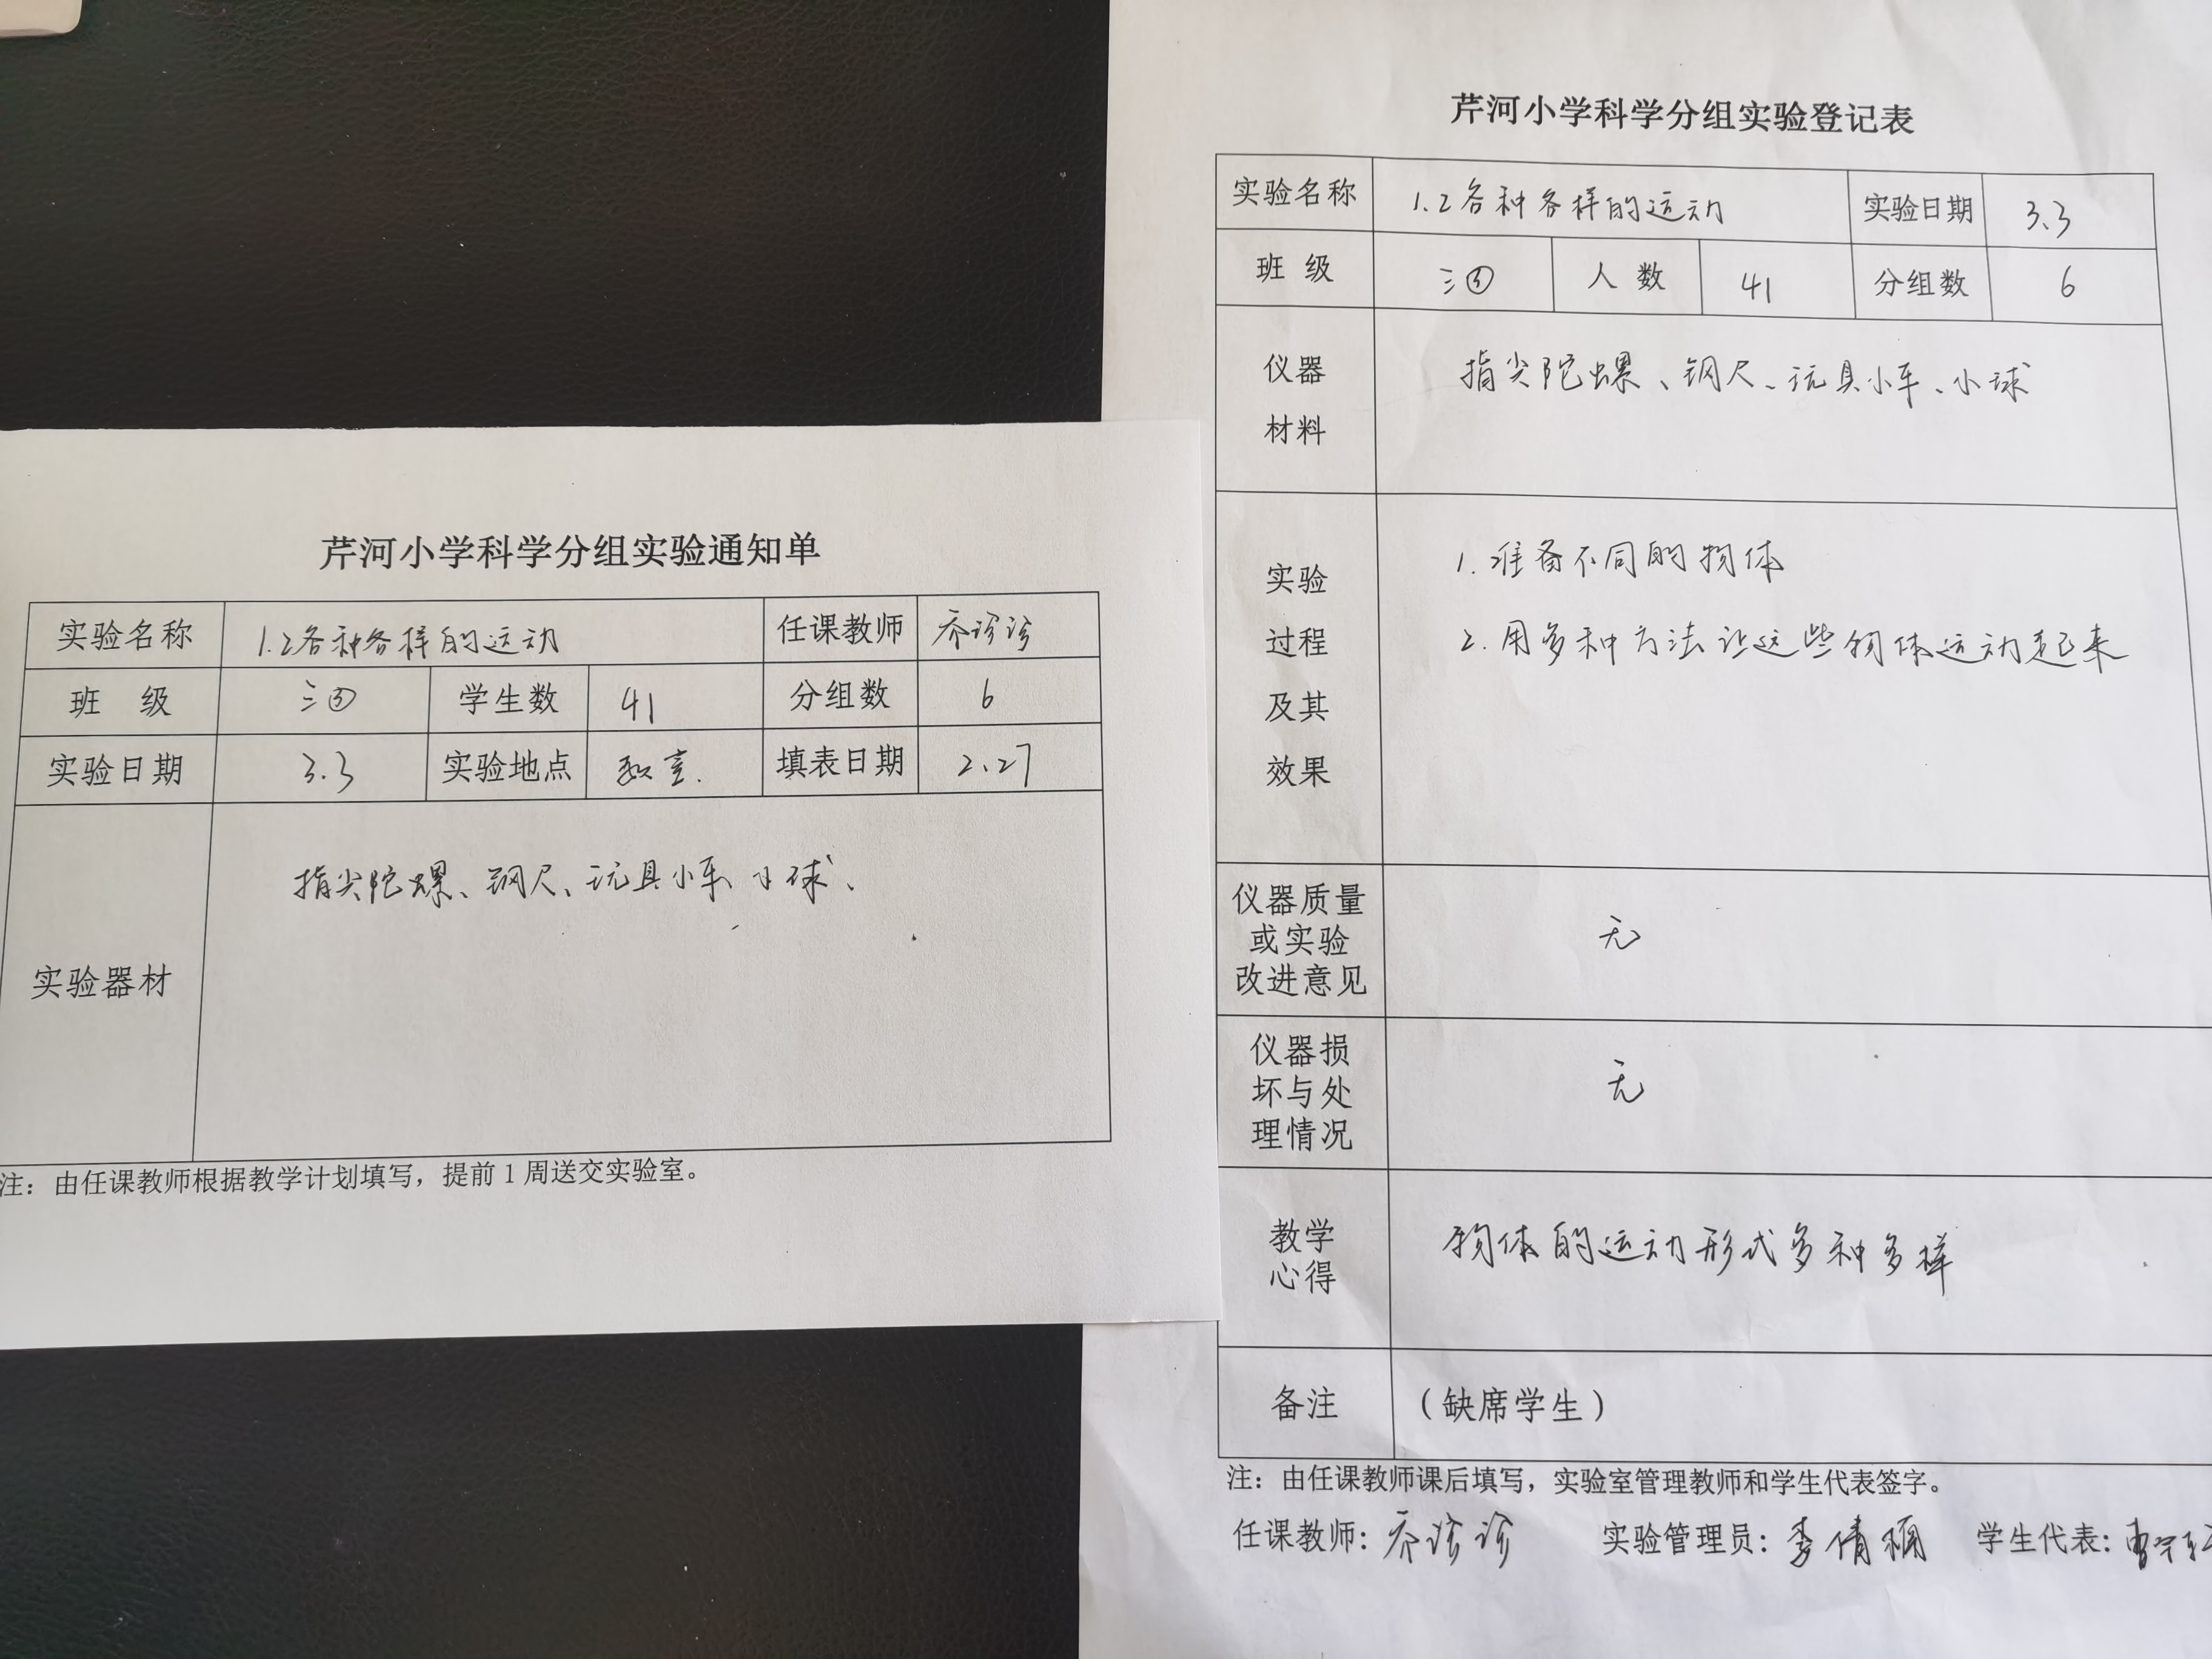 芹河小学科学分组实验通知单
实验名称 1.2各种各样的运动 任课教师 乔诊诊
班 级 三③ 学生数 41 分组数 6
实验日期 3.3 实验地点 教室. 填表日期 2.27
实验器材 指尖陀螺、钢尺、玩具小车、小球、
注：由任课教师根据教学计划填写，提前1周送交实验室。
芹河小学科学分组实验登记表
实验名称 1.2各种各样的运动 实验日期 3.3
班 级 三③ 人 数 41 分组数 6
仪器
材料
指尖陀螺、钢尺、玩具小车、小球
实验
过程
及其
效果
1.准备不同的物体
2.用多种方法让这些物体运动起来
仪器质量
或实验
改进意见
无
仪器损
坏与处
理情况
无
教学
心得
物体的运动形式多种多样
备注 （缺席学生）
注：由任课教师课后填写，实验室管理教师和学生代表签字。
任课教师：乔诊诊 实验管理员：李倩 学生代表：曹